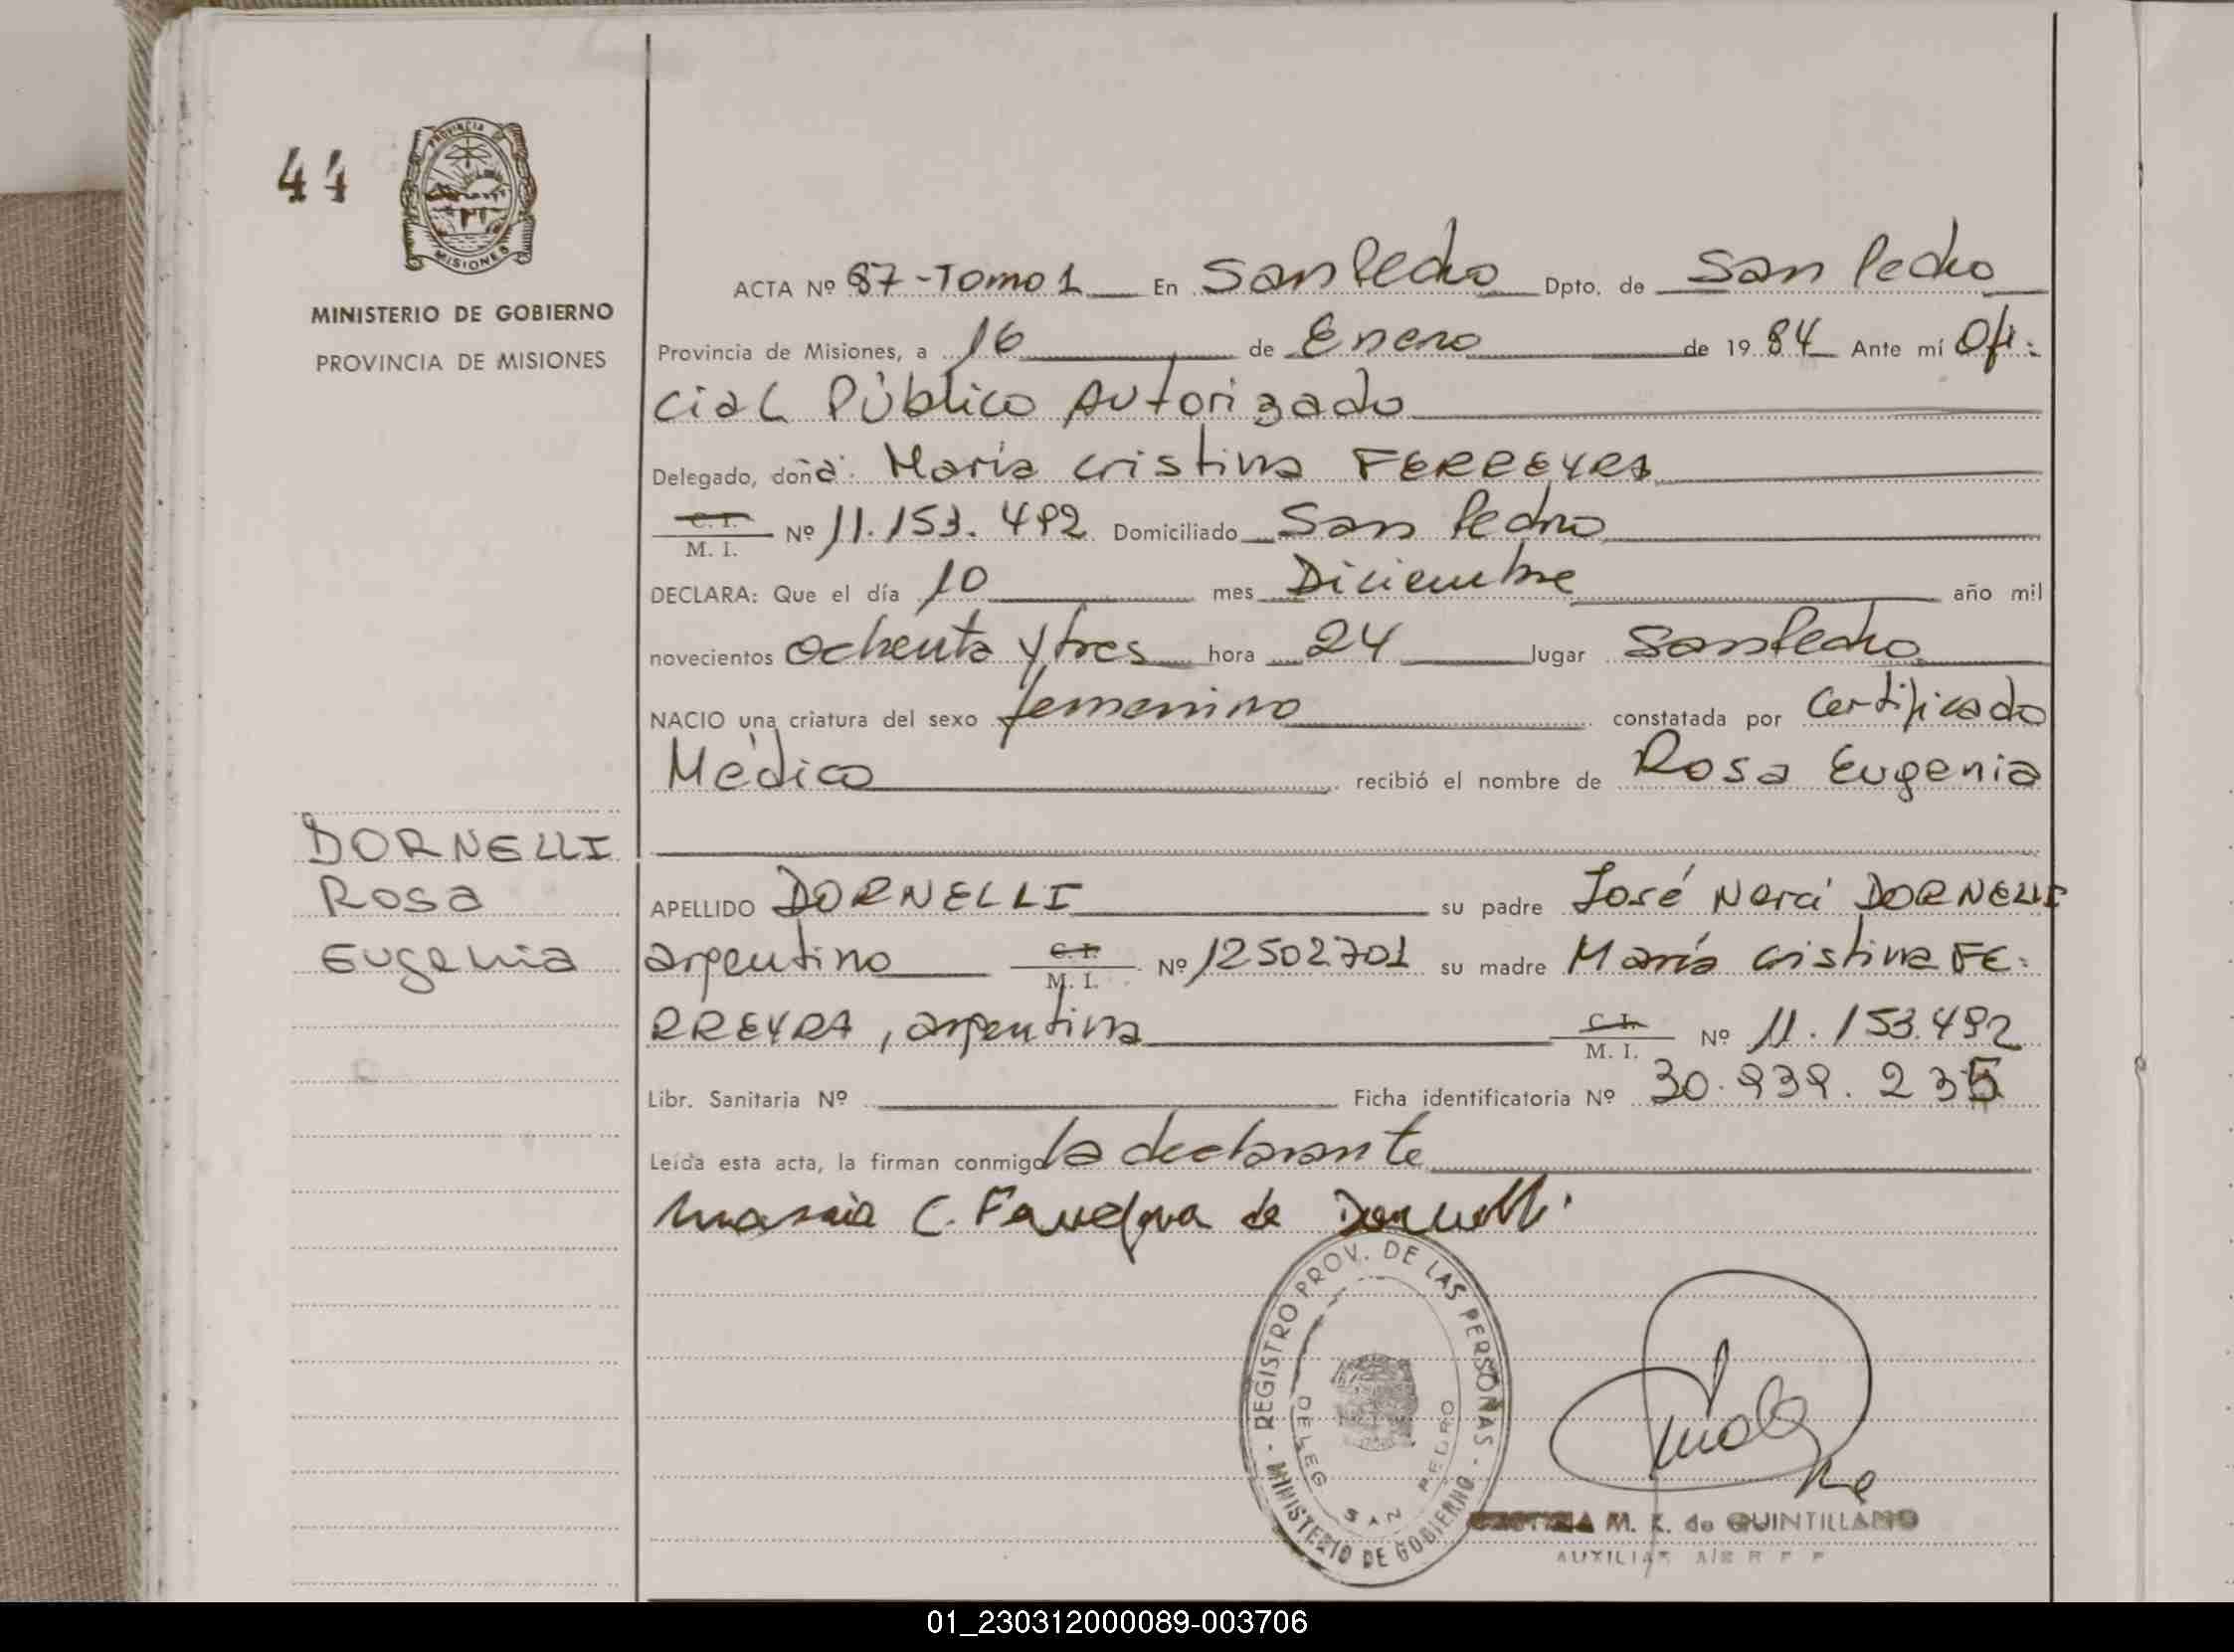 44
PROVINCIA DE
MISIONES
MINISTERIO DE GOBIERNO
PROVINCIA DE MISIONES
ACTA Nº 87-Tomo 1 En San Pedro Dpto. de San Pedro
Provincia de Misiones, a 16 de Enero de 1984 Ante mí Ofi-
cial Público Autorizado
Delegado, doña: María Cristina FERREYRA
C. I. M. I. Nº 11.153.492 Domiciliado San Pedro
DECLARA: Que el día 10 mes Diciembre año mil
novecientos ochenta y tres hora 24 lugar San Pedro
NACIO una criatura del sexo femenino constatada por Certificado
Médico recibió el nombre de Rosa Eugenia
DORNELLI
Rosa
Eugenia
APELLIDO DORNELLI su padre José Nerci DORNELLI
argentino C. I. M. I. Nº 12502701 su madre María Cristina FE-
RREYRA, argentina C. I. M. I. Nº 11.153.492
Libr. Sanitaria Nº Ficha identificatoria Nº 30.939.235
Leída esta acta, la firman conmigo la declarante
Maria C. Ferreyra de Dornelli
- REGISTRO PROV. DE LAS PERSONAS -
MINISTERIO DE GOBIERNO
DELEG SAN PEDRO
M. K. de QUINTILLANO
AUXILIAR
01_230312000089-003706